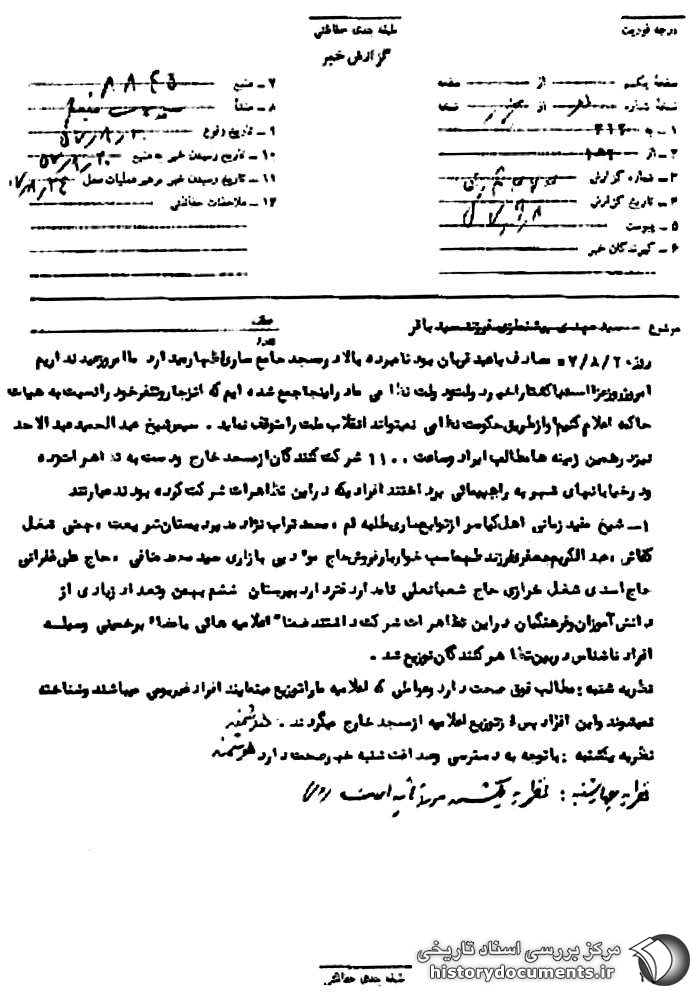 درجه فوریت
طبقه بندی حفاظتی
گزارش خبر
صفحهٔ یکم از صفحه
نسخهٔ شماره از نسخه
۱ـ به ۳۱۲
۲ـ از
۳ـ شماره گزارش
۴ـ تاریخ گزارش
۵ـ پیوست
۶ـ گیرندگان خبر
۷ـ منبع
۸ـ منشأ
۹ـ تاریخ وقوع ۵۷٫۸٫۲۰
۱۰ـ تاریخ رسیدن خبر به منبع ۵۷٫۸٫۲۰
۱۱ـ تاریخ رسیدن خبر به رهبر عملیات محل
۱۲ـ ملاحظات حفاظتی
موضوع ـ سید مهدی پیشنمازی فرزند سید باقر
روز ۷/۸/۲۰ مصادف با عید قربان بود نامبرده بالا در مسجد جامع ساری اظهار میدارد ما امروز عید نداریم
امروز روز عزا است
ما در اینجا جمع شده ایم که انزجار و تنفر خود را نسبت به هیات
حاکمه اعلام کنیم او از طریق حکومت نظامی نمیتواند انقلاب ملت را متوقف نماید . سپس شیخ عبدالحمید عبدالاحد
نیز در همین زمینه ها مطالب ایراد و ساعت ۱۱۰۰ شرکت کنندگان از مسجد خارج و دست به تظاهرات زده
و در خیابانهای شهر به راهپیمائی پرداختند افرادیکه در این تظاهرات شرکت کرده بودند عبارتند
۱ـ شیخ مفید زمانی اهل کیاسر از توابع ساری طلبه قم ، محمد تراب نژاد مدیر دبیرستان شریعت ، شغل
کفاش ، عبدالکریم جعفری فرزند طهماسب خواربار فروش حاج بازاری سید محمد ، حاج علی
حاج اسدی شغل خرازی حاج شعبانعلی دفتردار دبیرستان ششم بهمن و تعداد زیادی از
دانش آموزان و فرهنگیان در این تظاهرات شرکت داشتند ضمنا" اعلامیه هائی با امضاء خمینی وسیله
افراد ناشناس در بین تظاهر کنندگان توزیع شد .
نظریه شنبه : مطالب فوق صحت دارد و عواملی که اعلامیه ها را توزیع مینمایند افراد غیر بومی میباشند و شناخته
نمیشوند و این افراد پس از توزیع اعلامیه از مسجد خارج میگردند .
نظریه یکشنبه : با توجه به دسترسی و صداقت شنبه خبر صحت دارد
نظریه چهارشنبه : نظریه یکشنبه مورد تأیید است
طبقه بندی حفاظتی
مرکز بررسی اسناد تاریخی
historydocuments.ir